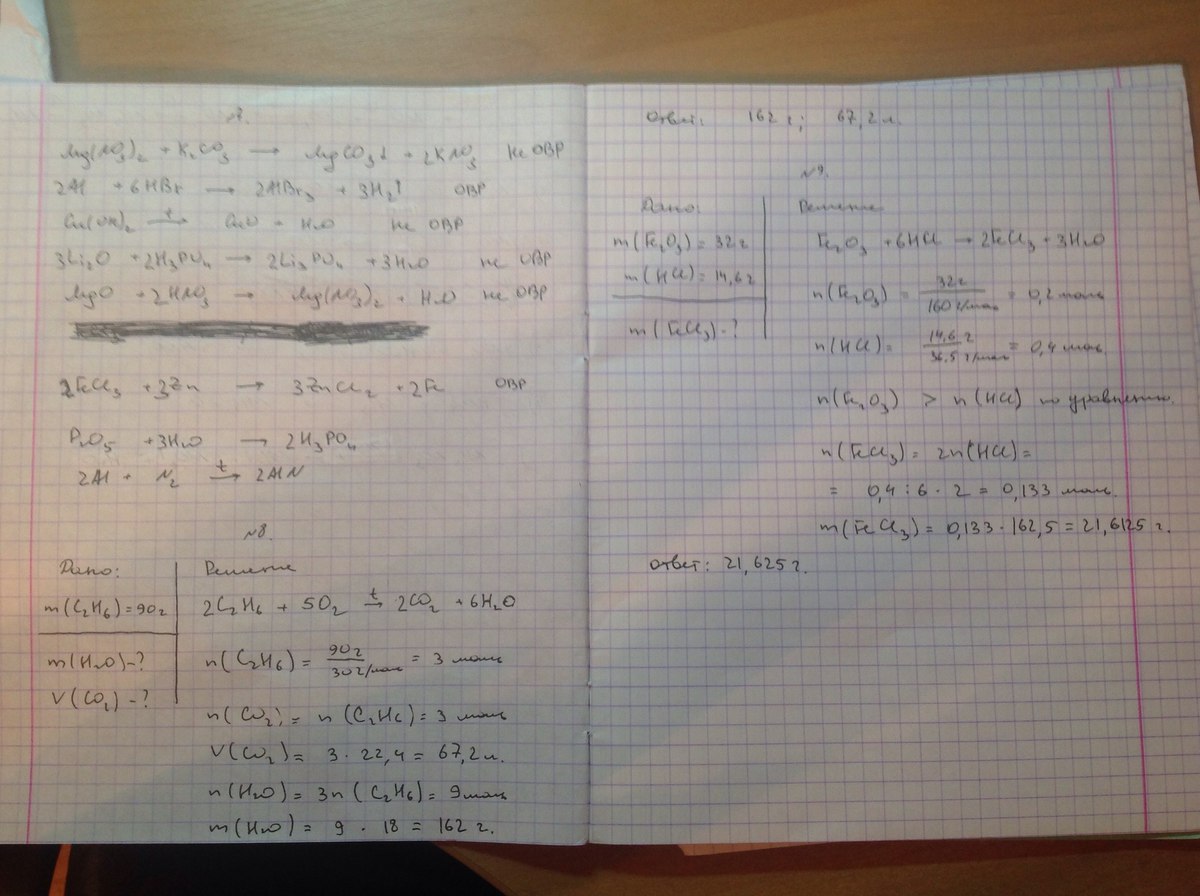 №7.
Mg(NO₃)₂ + K₂CO₃ → MgCO₃↓ + 2KNO₃ не ОВР
2Al + 6HBr → 2AlBr₃ + 3H₂↑ ОВР
Cu(OH)₂ —t→ CuO + H₂O не ОВР
3Li₂O + 2H₃PO₄ → 2Li₃PO₄ + 3H₂O не ОВР
MgO + 2HNO₃ → Mg(NO₃)₂ + H₂O не ОВР
2FeCl₃ + 3Zn → 3ZnCl₂ + 2Fe ОВР
P₂O₅ + 3H₂O → 2H₃PO₄
2Al + N₂ —t→ 2AlN
№8.
Дано:
m(C₂H₆) = 90г
m(H₂O) - ?
V(CO₂) - ?
Решение
2C₂H₆ + 5O₂ —t→ 2CO₂ + 6H₂O
n(C₂H₆) = 90г / 30г/моль = 3 моль
n(CO₂) = n(C₂H₆) = 3 моль
V(CO₂) = 3 · 22,4 = 67,2л.
n(H₂O) = 3n(C₂H₆) = 9моль
m(H₂O) = 9 · 18 = 162 г.
Ответ: 162 г; 67,2л.
№9.
Дано:
m(Fe₂O₃) = 32г
m(HCl) = 14,6г
m(FeCl₃) - ?
Решение
Fe₂O₃ + 6HCl → 2FeCl₃ + 3H₂O
n(Fe₂O₃) = 32г / 160г/моль = 0,2 моль
n(HCl) = 14,6г / 36,5г/моль = 0,4 моль.
n(Fe₂O₃) > n(HCl) по уравнению.
n(FeCl₃) = 2n(HCl) =
= 0,4 : 6 · 2 = 0,133 моль.
m(FeCl₃) = 0,133 · 162,5 = 21,6125 г.
Ответ: 21,625г.